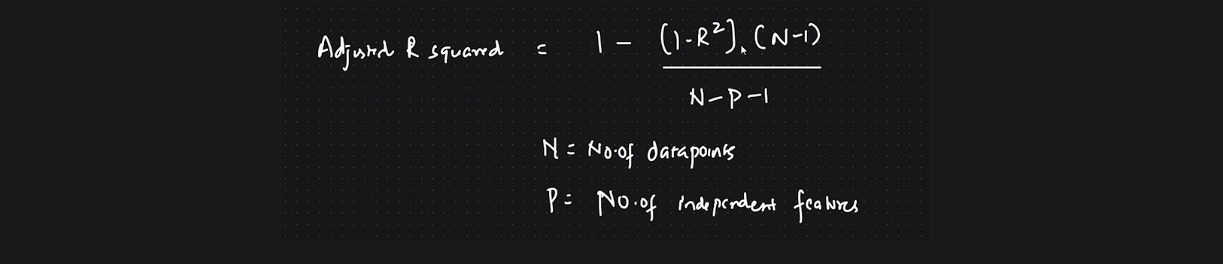 Adjusted R squared = 1 - (1-R²).(N-1)
N-P-1
N = No.of datapoints
P = No.of independent features